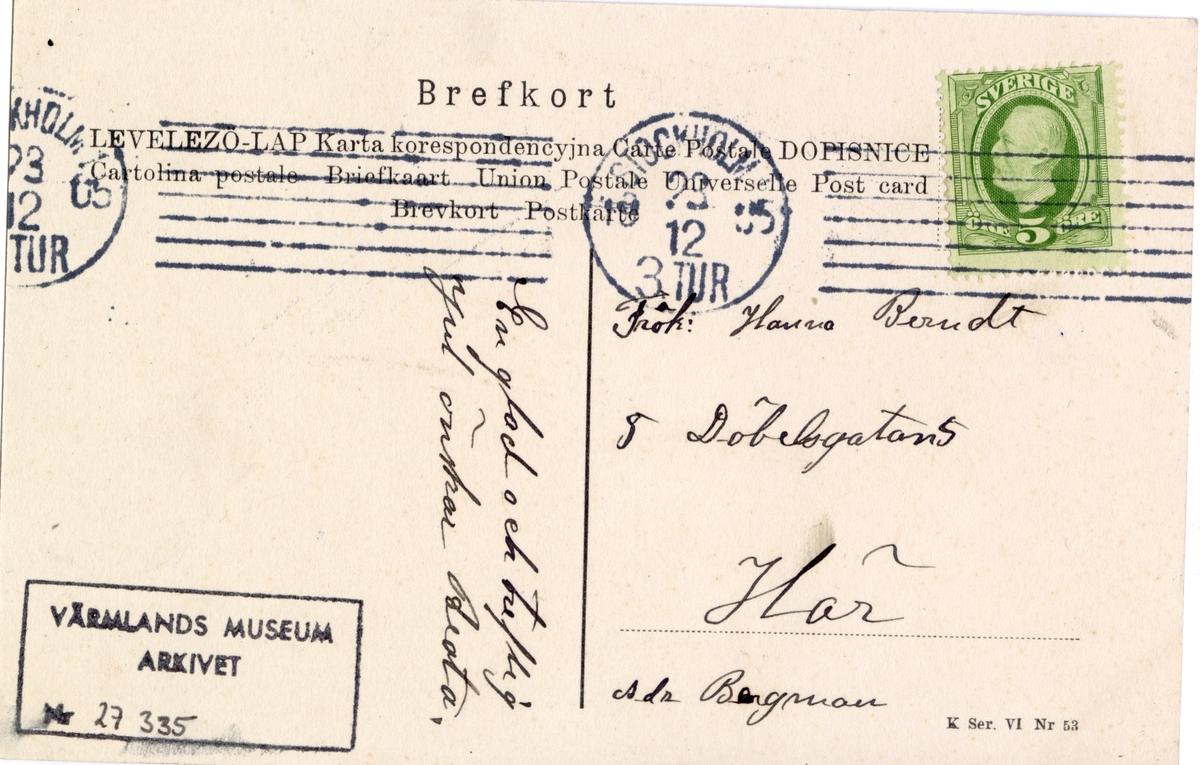 Brefkort
LEVELEZÖ-LAP Karta korespondencyjna Carte Postale DOPISNICE
Cartolina postale Briefkaart Union Postale Universelle Post card
Brevkort Postkarte
KHOLM
23
12 05
TUR
STOCKHOLM
23
12
3.TUR
SVERIGE
ÖRE 5 ÖRE
En glad och treflig
Jul, önskar
Frök: Hanna Berndt
5 Döbelsgatan 5
Här
adr Bergman
VÄRMLANDS MUSEUM
ARKIVET
Nr 27 335
K Ser. VI Nr 53